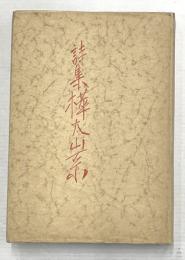 詩集樺太山系